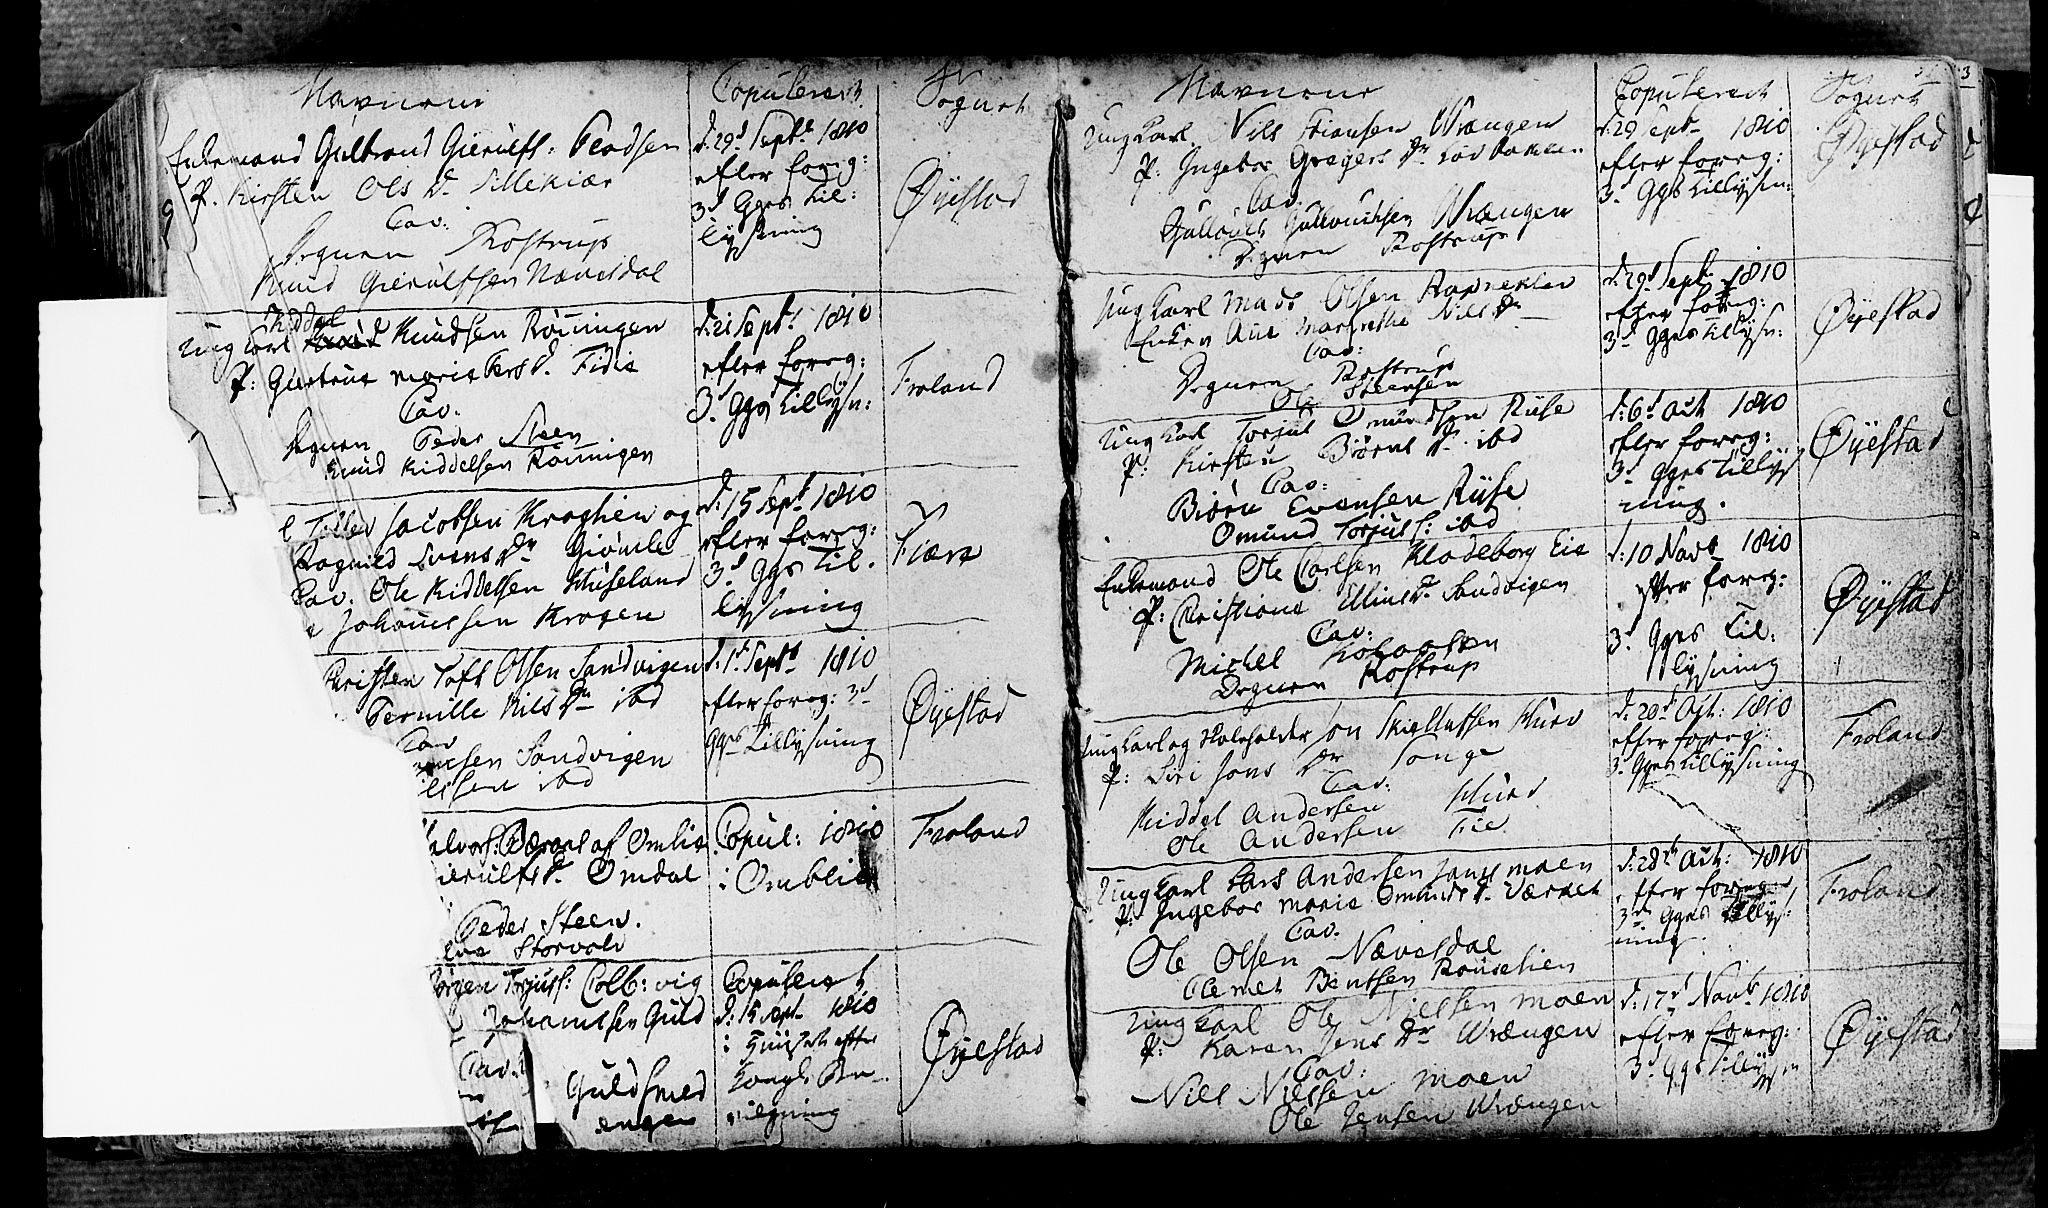 Navnene
Copuleret
Sognet
Enkemand Gultrand Gieruls:
P. Kirsten Ols D. Sillekiær
Cav:
Degnen Rostrup
Knud Gierultsen Nævesdal
d: 29d Septb 1810
efter foreg:
3d Gges Til:
lysning
Øyestad
Kiddel
Ung Karl Knudsen Rønningen
P: Gurtrue Marie D. Fidie
Cav.
Degnen Peder Steen
Knud Kiddelsen Rønningen
d: 21 Septb 1810
efter foreg:
3d Gges Tillysn:
Froland
Tellev Jacobsen Kroghen og
Ragnild Svens Dr
Cav. Ole Kiddelsen Huseland
Johannesen Krogen
d: 15 Septb 1810
efter foreg:
3d Gges Til.
lysning
Fiære
Christen Toft Olsen Sandvigen
Pernille Nils Dr ibd
Cav
Sandvigen
ibd
d: 1d Septb 1810
efter foreg: 3d
Gges Tillysning
Øyestad
af Omlie
D. Omdal
Peder Steen.
Storvold
Copul: 1810
i Omblie
Froland
Jørgen Torjuss: Colb: vig
Johannesen Guld
Cav.
Guldsmed
engen
Copuleret
d: 15 Sept 1810
i Huuset efter
Kongl: Be-
vilgning
Øyestad
Navnene
Copuleret
Sognet
Ung Karl Nils Wrængen
P: Ingebor Gregers Dr
Cav:
Gullouv Gullouvsen Wrængen
Degnen Rostrup
d: 29 Septb 1810
efter foreg:
3d Gges Tillysn:
Øyestad
Ung Karl Mads Olsen
Enken Ane Margrethe Nils Dr
Cav:
Degnen Rostrup
Ole Steensen
d: 29d Septb 1810
efter foreg:
3d Gges Tillysn:
Øyestad
Ung Karl Torjus Omundsen Riise
P: Kirsten Biørns D. ibd
Cav:
Biørn Evensen Riise
Omund Torjuss: ibd
d: 6d Oct 1810
efter foreg:
3d Gges Tillys
ning.
Øyestad
Enkemand Ole Carlsen Klodeborg Eie
P: Christiane Ellins Dr Sandvigen
Cav:
Michel
Degnen Rostrup
d: 10 Novb 1810
efter foreg:
3d Gges Til:
lysning
Øyestad
Ung Karl og Jon Huus
P: Siri Jons Dr Songe
Cav:
Kiddel Andersen Huus
Ole Andersen Fie
d: 20d Oct: 1810
efter foreg:
3d Gges Tillysning
Froland
Ung Karl Lars Andersen Jonsmoen
P: Ingebor Marie Omunds D. Værket
Cav.
Ole Olsen Nævesdal
Clemet Bentsen
d: 28d Oct: 1810
efter foreg:
3d Gges Tillys:
ning
Froland
Ung Karl Ole Nielsen Moen
P: Karen Jens Dr Wrængen
Cav:
Niels Nielsen Moen
Ole Jensen Wrængen
d: 17d Novb 1810
efter foreg:
3d Gges Tillysn
Øyestad